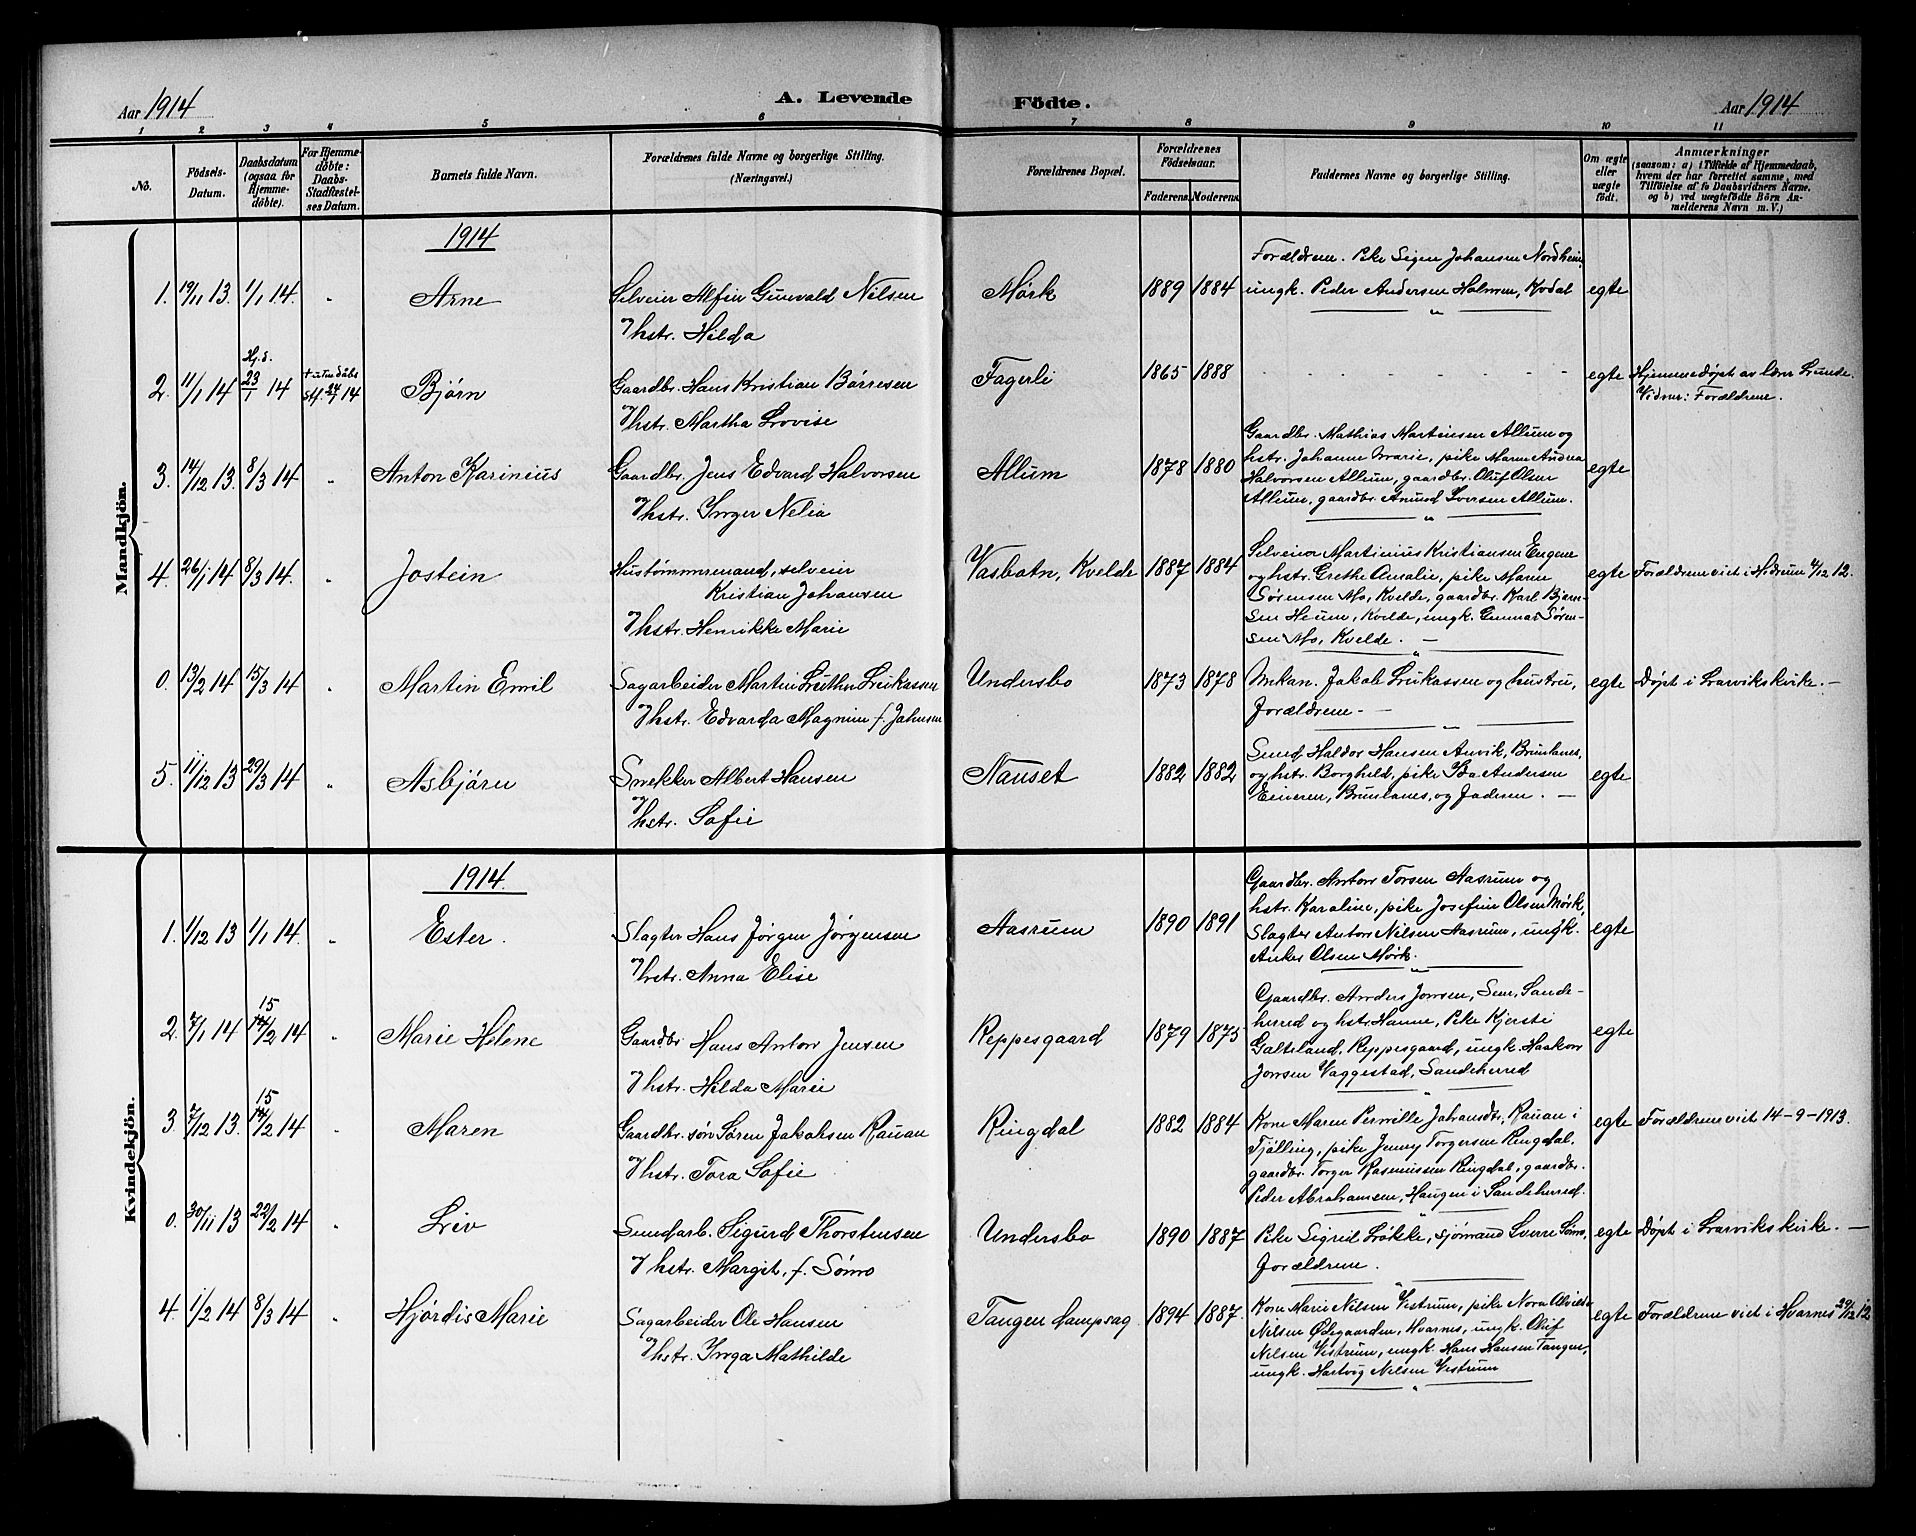 Aar 1914
A. Levende
Födte.
Aar 1914
1 2 3 4 5 6 7 8 9 10 11
No.
Födsels-
Datum.
Daabsdatum
(ogsaa for
Hjemme-
döbte).
For Hjemme-
döbte:
Daabs-
Stadfæstel-
ses Datum.
Barnets fulde Navn.
Forældrenes fulde Navne og borgerlige Stilling.
(Næringsvei.)
Forældrenes Bopæl.
Forældrenes
Födselsaar.
Faderens. Moderens.
Faddernes Navne og borgerlig Stilling.
Om ægte
eller
uægte
født.
Anmærkninger
(saasom: a) i Tilfælde af Hjemmedaab,
hvem der har forrettet samme, med
Tilföielse af to Daabsvidners Navne,
og b) ved uægtefödte Börn An-
melderens Navn m. V.)
Mandkjön.
1914
1. 19/11 13. 1/1 14. " Arne
Selveier Alfin Gunvald Nilsen
og hstr. Hilda
Mørk 1889 1884
Forældrene. Pike Signe Johansen Nordheim,
ungk. Peder Andersen Holmen, Kodal
egte
2. 11/1 14 Hj.d. 23/1 14 Stf. 24/1 14 Bjørn
Gaardbr. Hans Kristian Børresen
og hstr. Martha Lovise
Fagerli 1865 1888
egte Hjemmedøpt av lærer Lunde.
Vidner: Forældrene.
3. 14/12 13. 8/3 14 " Anton Karinius
Gaardbr. Jens Edvard Halvorsen
og hstr. Inger Nelia
Allum 1878 1880
Gaardbr. Mathias Martinsen Allum og
hstr. Johanne Marie, pike Maren Andrea
Halvorsen Allum, gaardbr. Oluf Olsen
Allum, gaardbr. Amund Iversen Allum.
egte
4. 26/1 14 8/3 14. " Jostein
Hustømmermand, selveier
Kristian Johansen
og hstr. Henrikke Marie
Vasbotn, Kvelde 1887 1884
Selveier Martinius Kristiansen Engene
og hstr. Grethe Amalie, pike Maren
Sørensen Mo, Kvelde, gaardbr. Karl Bjarn-
sen Heum, Kvelde, ungk. Gunnar Søren-
sen Mo, Kvelde. –
egte Forældrene viet i Hedrum 4/12 12.
0. 13/2 14 15/3 14 " Martin Emil
Sagarbeider Martin Luther Lukassen
og hstr. Edvarda Magnine f. Johnsen
Undersbo 1873 1878
Mekan. Jakob Lukassen og hustru,
Forældrene –
egte Døpt i Larvikskirke. –
5. 11/12 13 29/3 14 " Asbjørn
Snekker Albert Hansen
og hstr. Sofie
Nauset 1882 1882
Smed Haldor Hansen Anvik, Brunlanes,
og hstr. Borghild, pike Ida Andersen
Brunlanes, og Faderen. –
egte
Kvindekjön.
1914.
1. 1/12 13 1/1 14. " Ester.
Slagter Hans Jørgen Jørgensen
og hstr. Anna Elise
Aasrum 1890 1891
Gaardbr. Anton Torsen Aasrum og
hstr. Karoline, pike Josefine Olsen Mørk,
Slagter Anton Nilsen Aasrum, ungk.
Anker Olsen Mørk.
egte
2. 7/1 14 15/2 14 " Marie Helene
Gaardbr. Hans Anton Jensen
og hstr. Hilda Marie
Reppesgaard 1879 1875
Gaardbr. Anders Jonsen, Sem, Sande-
herred og hstr. Hanne, Pike Kjersti
Galteland, Reppesgaard, ungk. Haakon
Jonsen Vaggestad, Sandeherred
egte
3. 7/12 13. 15/2 14 " Maren
Gaardbr. søn Søren Jakobsen Rauan
og hstr. Tora Sofie
Ringdal 1882 1884
Kone Maren Pernille Johansdtr. Rauan i
Tjølling, pike Jenny Torgersen Ringdal,
gaardbr. Torger Rasmussen Ringdal, gaardbr.
Peder Abrahamsen, Haugen i Sandeherred.
egte Forældrene viet 14-9-1913.
0. 30/11 13 22/2 14 " Liv
Smedarb. Sigurd Thorstensen
og hstr. Margit, f. Sømo
Undersbo 1890 1887
Pike Sigrid Løkke, sjømand Sverre Sømo,
Forældrene.
egte Døpt i Larvikskirke. –
4. 1/2 14 8/3 14 " Hjørdis Marie
Sagarbeider Ole Hansen
og hstr. Inga Mathilde
Tangen dampsag 1894 1887.
Kone Marie Nilsen Vestrum, pike Nora Alvilda
Nilsen Ødegaarden, Hvarnes, ungk. Oluf
Nilsen Vestrum, ungk. Hans Hansen Tangen,
ungk. Hartvig Nilsen Vestrum
egte Forældrene viet i Hvarnes 29/12 12